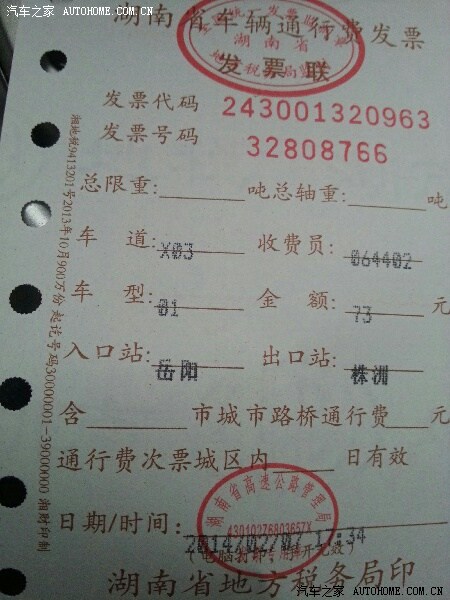 汽车之家 AUTOHOME.COM.CN
汽车之家 AUTOHOME.COM.CN
湖南省车辆通行费发票
湖南省
发票联
发票代码 243001320963
发票号码 32808766
总限重:______吨总轴重:______吨
车 道:X03 收费员:064402
车 型:01 金 额:73 元
入口站:岳阳 出口站:株洲
含______市城市路桥通行费__元
通行费次票城区内____日有效
湖南省高速公路管理局
日期/时间:2014/02/07 17:34
湖南省地方税务局印
湘地税9413201号2013年10月900万份 起讫号码30000001-39000000 湘财印制
汽车之家 AUTOHOME.COM.CN